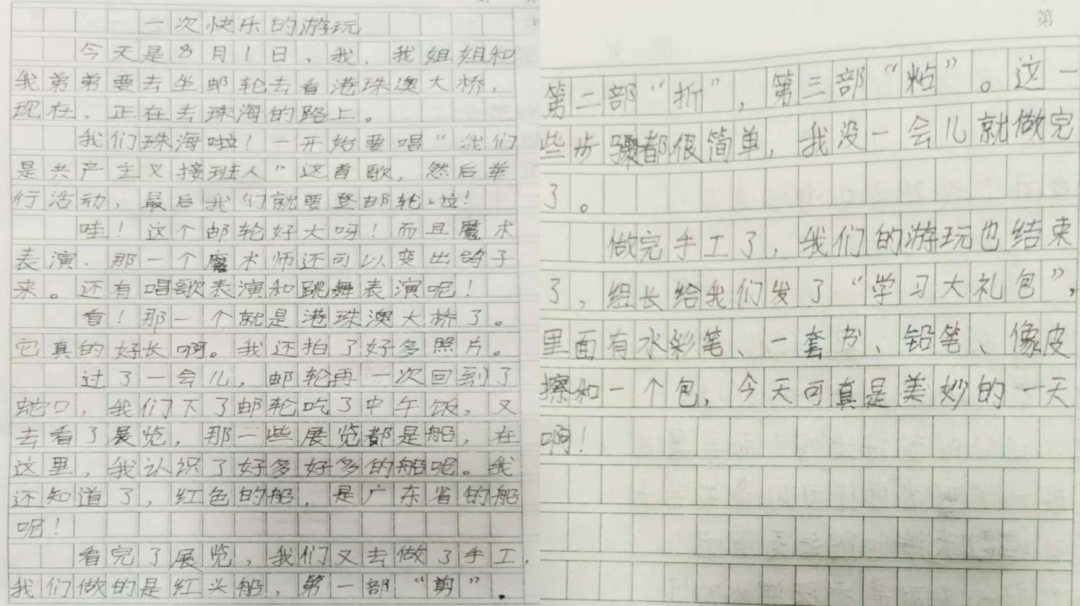 一次快乐的游玩
今天是8月1日，我、我姐姐和
我弟弟要去坐邮轮去看港珠澳大桥，
现在，正在去珠海的路上。
我们珠海啦！一开始要唱“我们
是共产主义接班人”这首歌，然后举
行活动，最后我们就要登邮轮啦！
哇！这个邮轮好大呀！而且魔术
表演、那一个魔术师还可以变出鸽子
来。还有唱歌表演和跳舞表演呢！
看！那一个就是港珠澳大桥了。
它真的好长啊。我还拍了好多照片。
过了一会儿，邮轮再一次回到了
蛇口，我们下了邮轮吃了中午饭，又
去看了展览，那一些展览都是船，在
这里，我认识了好多好多的船呢。我
还知道了，红色的船，是广东省的船
呢！
看完了展览，我们又去做了手工，
我们做的是红头船，第一部“剪”，
第
第二部“折”，第三部“粘”。这一
些步骤都很简单，我没一会儿就做完
了。
做完手工了，我们的游玩也结束
了，组长给我们发了“学习大礼包”，
里面有水彩笔、一套书、铅笔、像皮
擦和一个包，今天可真是美妙的一天
啊！